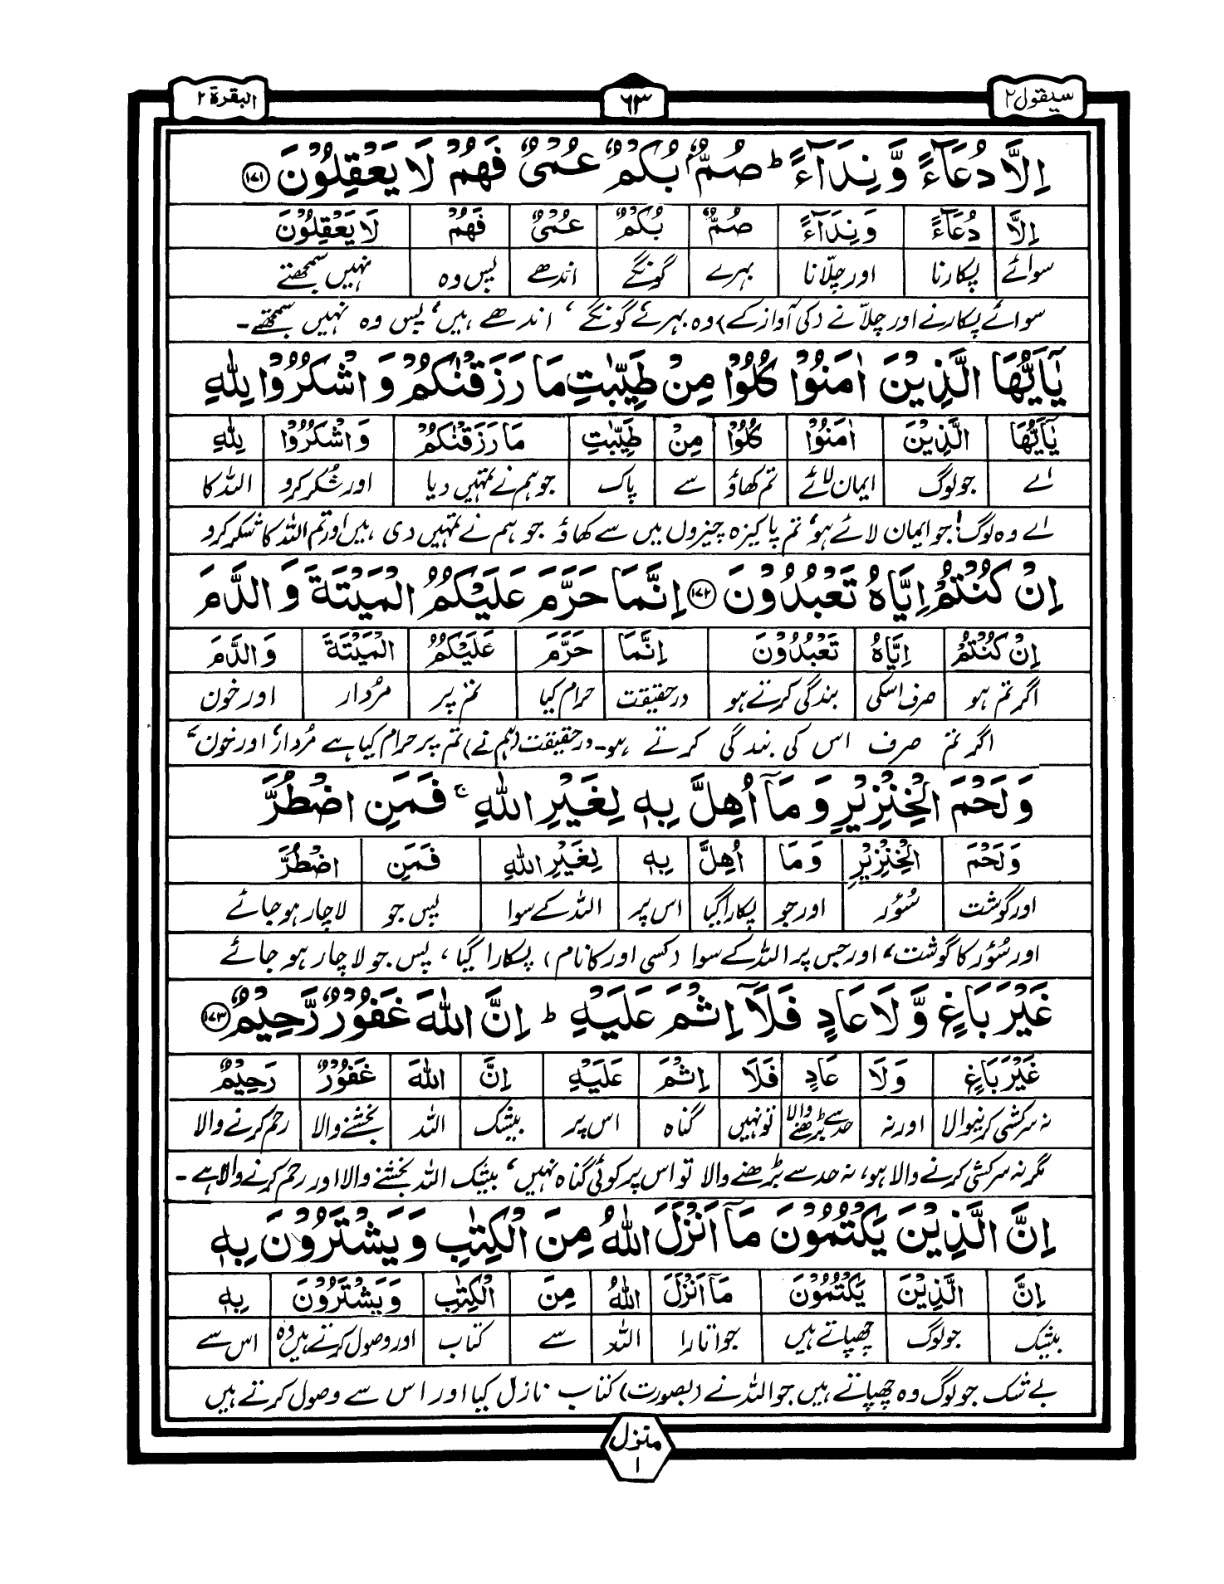 سیقول۲ ۶۳ البقرة ۲
اِلَّا دُعَآءً وَّ نِدَآءً ؕ صُمٌّۢ بُكْمٌ عُمْیٌ فَهُمْ لَا یَعْقِلُوْنَ ﴿۱۷۱﴾
اِلَّا دُعَآءً وَنِدَآءً صُمٌّ بُكْمٌ عُمْیٌ فَهُمْ لَا یَعْقِلُوْنَ
سوائے پکارنا اور چلّانا بہرے گونگے اندھے پس وہ نہیں سمجھتے
سوائے پکارنے اور چلّانے (کی آواز کے) وہ بہرے گونگے، اندھے ہیں، پس وہ نہیں سمجھتے۔
یٰۤاَیُّهَا الَّذِیْنَ اٰمَنُوْا كُلُوْا مِنْ طَیِّبٰتِ مَا رَزَقْنٰكُمْ وَ اشْكُرُوْا لِلّٰهِ
یٰۤاَیُّهَا الَّذِیْنَ اٰمَنُوْا كُلُوْا مِنْ طَیِّبٰتِ مَا رَزَقْنٰكُمْ وَ اشْكُرُوْا لِلّٰهِ
اے جو لوگ ایمان لائے تم کھاؤ سے پاک جو ہم نے تمہیں دیا اور شکر کرو اللہ کا
اے وہ لوگ! جو ایمان لائے ہو، تم پاکیزہ چیزوں میں سے کھاؤ جو ہم نے تمہیں دی ہیں اور تم اللہ کا شکر کرو
اِنْ كُنْتُمْ اِیَّاهُ تَعْبُدُوْنَ ﴿۱۷۲﴾ اِنَّمَا حَرَّمَ عَلَیْكُمُ الْمَیْتَةَ وَ الدَّمَ
اِنْ كُنْتُمْ اِیَّاهُ تَعْبُدُوْنَ اِنَّمَا حَرَّمَ عَلَیْكُمُ الْمَیْتَةَ وَ الدَّمَ
اگر تم ہو صرف اسکی بندگی کرتے ہو درحقیقت حرام کیا تم پر مُردار اور خون
اگر تم صرف اس کی بندگی کرتے ہو۔ درحقیقت (ہم نے) تم پر حرام کیا ہے مُردار، اور خون،
وَ لَحْمَ الْخِنْزِیْرِ وَ مَاۤ اُهِلَّ بِهٖ لِغَیْرِ اللّٰهِ ۚ فَمَنِ اضْطُرَّ
وَ لَحْمَ الْخِنْزِیْرِ وَمَا اُهِلَّ بِهٖ لِغَیْرِ اللّٰهِ فَمَنِ اضْطُرَّ
اور گوشت سُوٴر اور جو پکارا گیا اس پر اللہ کے سوا پس جو لاچار ہو جائے
اور سُوٴر کا گوشت، اور جس پر اللہ کے سوا (کسی اور کا نام) پکارا گیا، پس جو لاچار ہو جائے
غَیْرَ بَاغٍ وَّ لَا عَادٍ فَلَاۤ اِثْمَ عَلَیْهِ ؕ اِنَّ اللّٰهَ غَفُوْرٌ رَّحِیْمٌ ﴿۱۷۳﴾
غَیْرَ بَاغٍ وَلَا عَادٍ فَلَا اِثْمَ عَلَیْهِ اِنَّ اللّٰهَ غَفُوْرٌ رَحِیْمٌ
نہ سرکشی کرنیوالا اور نہ حد سے بڑھنے والا تو نہیں گناہ اس پر بیشک اللہ بخشنے والا رحم کرنے والا
مگر نہ سرکشی کرنے والا ہو، نہ حد سے بڑھنے والا تو اس پر کوئی گناہ نہیں، بیشک اللہ بخشنے والا اور رحم کرنے والا ہے۔
اِنَّ الَّذِیْنَ یَكْتُمُوْنَ مَاۤ اَنْزَلَ اللّٰهُ مِنَ الْكِتٰبِ وَ یَشْتَرُوْنَ بِهٖ
اِنَّ الَّذِیْنَ یَكْتُمُوْنَ مَاۤ اَنْزَلَ اللّٰهُ مِنَ الْكِتٰبِ وَ یَشْتَرُوْنَ بِهٖ
بیشک جو لوگ چھپاتے ہیں جو اتارا اللہ سے کتاب اور وصول کرتے ہیں وہ اس سے
بے شک جو لوگ وہ چھپاتے ہیں جو اللہ نے (بصورت) کتاب نازل کیا اور اس سے وصول کرتے ہیں
منزل
۱